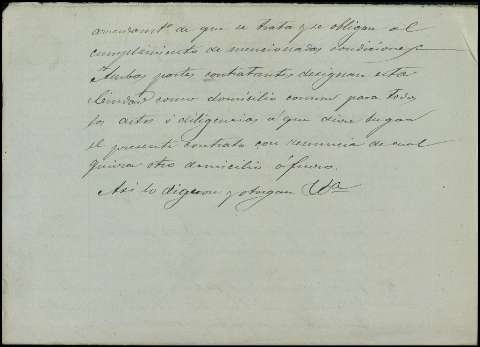 arrendamto. de que se trata y se obligan al
cumplimiento de mencionadas condiciones
Ambas partes contratantes designan esta
Ciudad como domicilio comun para todos
los actos i diligencias á que diere lugar
el presente contrato con renuncia de cual
quiera otro domicilio ó fuero.
Asi lo digeron y otorgan